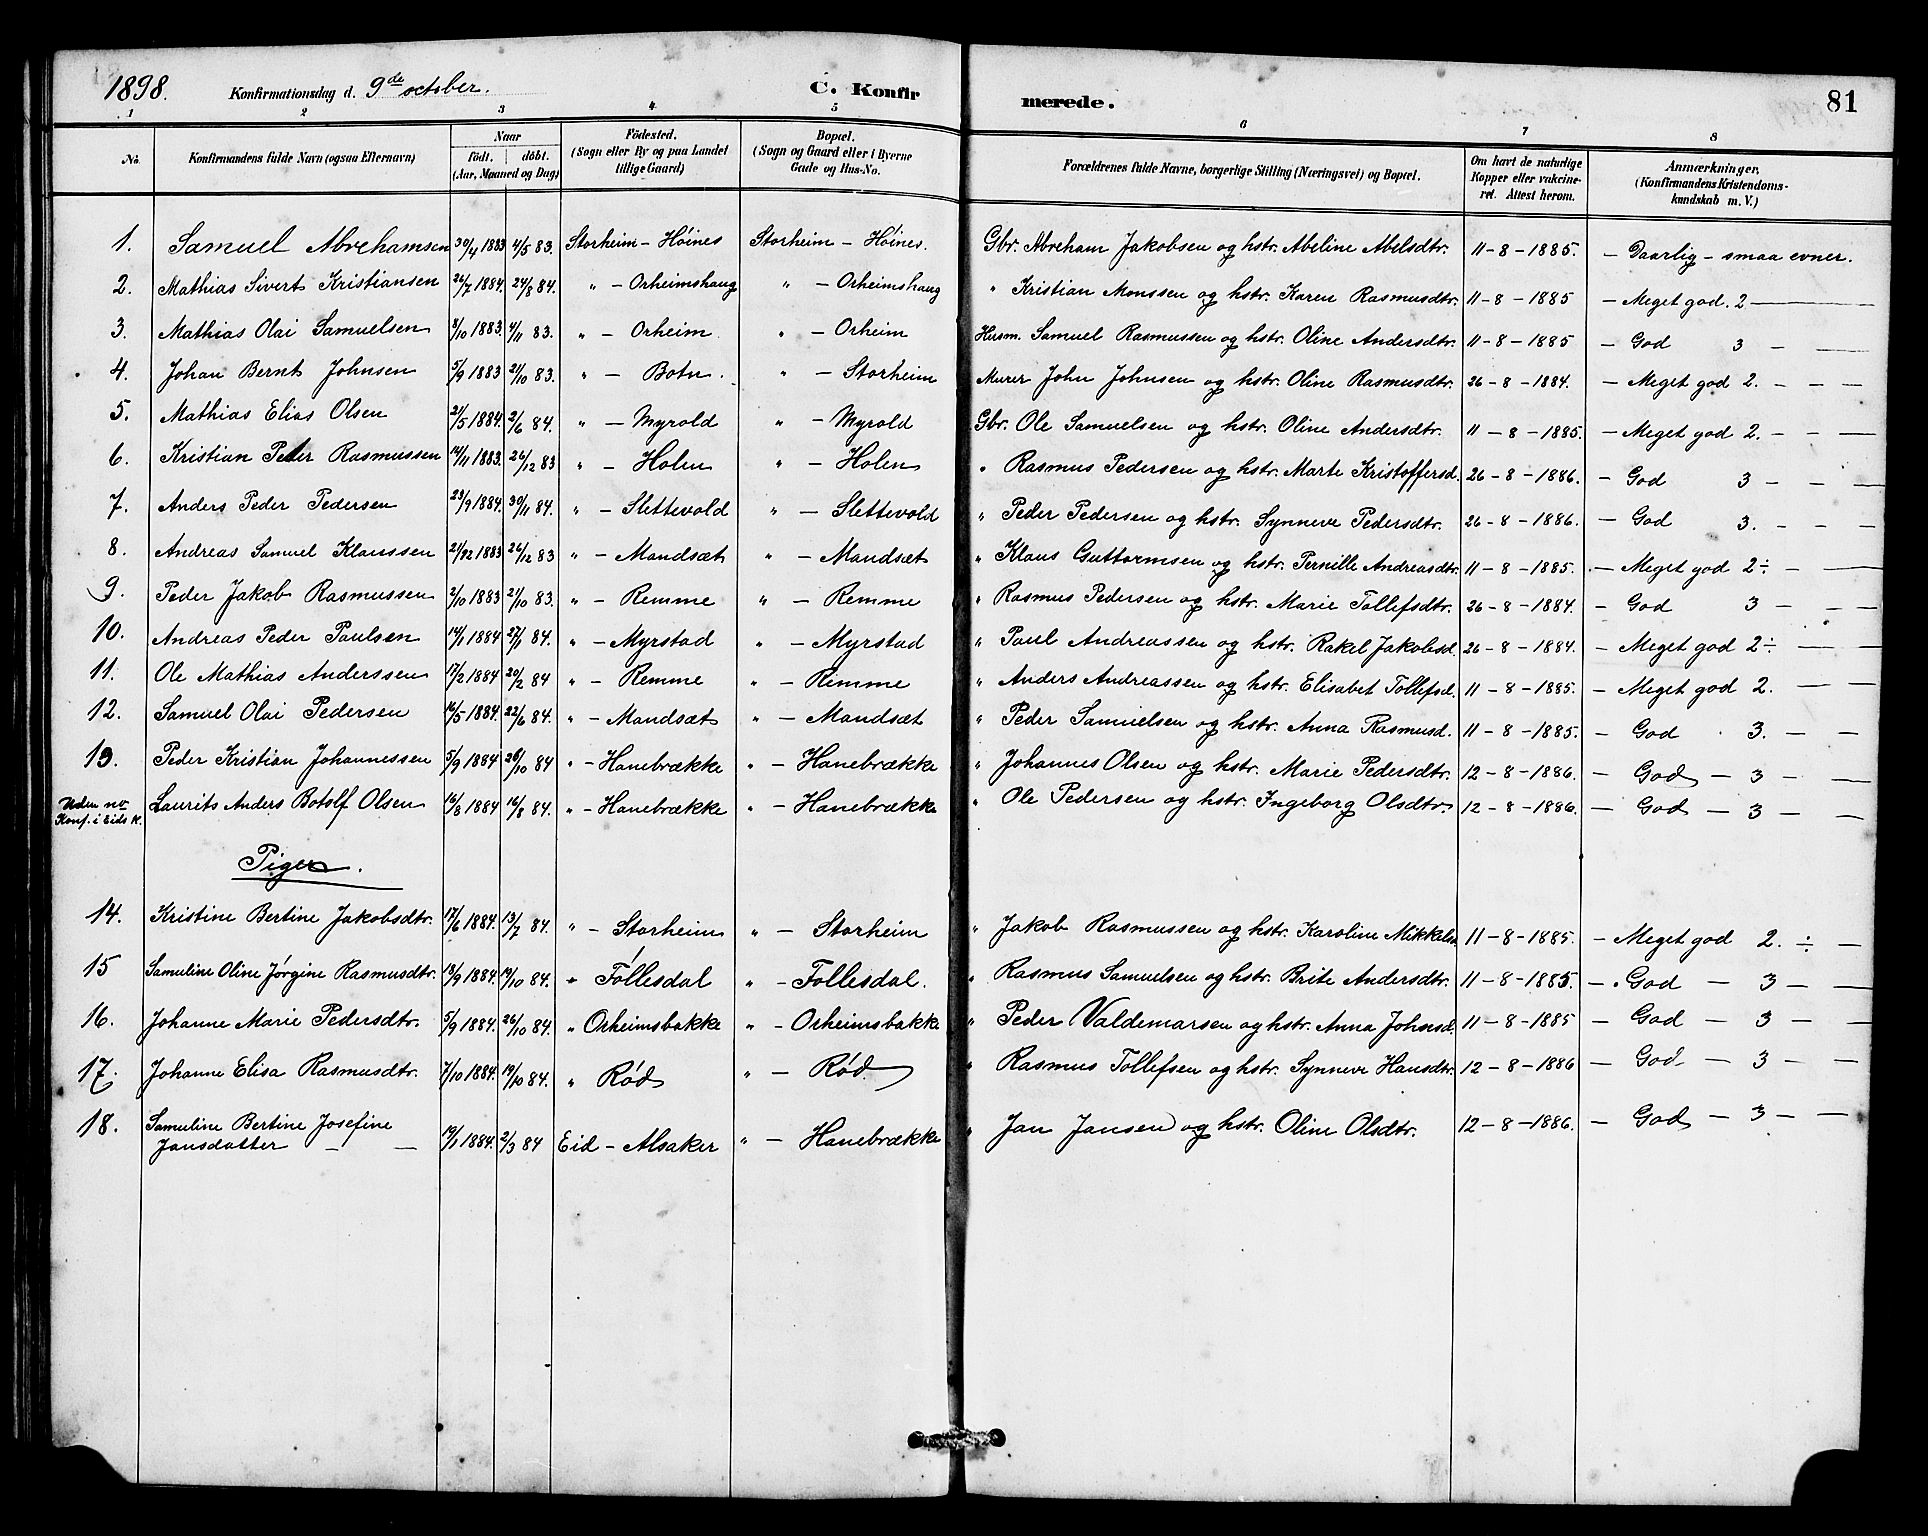 1898. Konfirmationsdag d. 9de october. C. Konfirmerede. 81
1 2 3 4 5 6 7 8
No. Konfirmandens fulde Navn (ogsaa Efternavn) Naar födt. döbt. (Aar, Maaned og Dag) Födested. (Sogn eller By og paa Landet tillige Gaard) Bopæl. (Sogn og Gaard eller i Byerne Gade og Hus-No. Forældrenes fulde Navne, borgerlige Stilling (Næringsvei) og Bopæl. Om havt de naturlige Kopper eller vakcineret. Attest herom. Anmærkninger. (Konfirmandens Kristendomskundskab m. V.)
1. Samuel Abrehamsen 30/4 1883 4/5 83. Storheim - Höines Storheim - Höines. Gbr. Abreham Jakobsen og hstr. Abeline Abelsdtr. 11-8-1885. - Daarlig - smaa evner.
2. Mathias Sivert Kristiansen 26/7 1884. 24/8 84. " - Orheimshaug " - Orheimshaug " Kristian Monssen og hstr. Karen Rasmusdtr. 11-8-1885 - Meget god. 2 -
3. Mathias Olai Samuelsen 8/10 1883 4/11 83. " - Orheim " - Orheim Husm. Samuel Rasmussen og hstr. Oline Andersdtr. 11-8-1885 - God 3 - -
4. Johan Bernt Johnsen 5/9 1883 21/10 83. " - Botn. " - Storheim Murer John Johnsen og hstr. Oline Rasmusdtr. 26-8-1884. - Meget god 2. - - -
5. Mathias Elias Olsen 21/5 1884. 2/6 84. " - Myrold " - Myrold Gbr. Ole Samuelsen og hstr. Oline Andersdtr. 11-8-1885. - Meget god 2. - - -
6. Kristian Peter Rasmussen 14/11 1883. 26/12 83 " - Holen " - Holen " Rasmus Pedersen og hstr. Marte Kristoffersd. 26-8-1886. - God 3 - - -
7. Anders Peder Pedersen 23/9 1884. 30/11 84. " - Slettevold " - Slettevold " Peder Pedersen og hstr. Synneve Pedersdtr. 26-8-1886. - God 3. - - -
8. Andreas Samuel Klaussen 21/12 1883 26/12 83 " - Mandsæt " - Mandsæt " Klaus Guttormsen og hstr. Pernille Andreasdtr. 11-8-1885. - Meget god 2÷ - -
9. Peder Jakob Rasmussen 2/10 1883 21/10 83. " - Remme " - Remme " Rasmus Pedersen og hstr. Marie Tollefsdtr. 26-8-1884. - God 3 - - -
10. Andreas Peder Paulsen 14/1 1884 27/1 84. " - Myrstad " - Myrstad " Paul Andreassen og hstr. Rakel Jakobsd. 26-8-1884. - Meget god 2÷ - -
11. Ole Mathias Anderssen 17/2 1884 20/2 84 " - Remme " - Remme " Anders Andreassen og hstr. Elisabet Tollefsd. 11-8-1885. - Meget god 2. - -
12. Samuel Olai Pedersen 16/5 1884. 22/6 84. " - Mandsæt " - Mandsæt " Peder Samuelsen og hstr. Anna Rasmusd. 11-8-1885. - God 3. - -
13. Peder Kristian Johannessen 5/9 1884 26/10 84 " - Hanebrække " - Hanebrække " Johannes Olsen og hstr. Marie Pedersdtr. 12-8-1886. - God - 3 - -
Uden no Konf. i Eids K. Laurits Anders Botolf Olsen 16/8 1884 16/8 84. " - Hanebrække " - Hanebrække " Ole Pedersen og hstr. Ingeborg Olsdtr. 12-8-1886. - God - 3 - -
Piger.
14. Kristine Bertine Jakobsdtr. 17/6 1884. 13/7 84. " - Storheim " - Storheim " Jakob Rasmussen og hstr. Karoline Mikkelsd. 11-8-1885. - Meget god 2. ÷ -
15 Samuline Oline Jørgine Rasmusdtr. 13/9 1884. 19/10 84. " Föllesdal " - Föllesdal. " Rasmus Samuelsen og hstr. Brite Andersdtr. 11-8-1885. - God - 3 - -
16. Johanne Marie Pedersdtr. 5/9 1884. 26/10 84. " Orheimsbakke " - Orheimsbakke " Peder Valdemarsen og hstr. Anna Johnsd. 11-8-1885 - God - 3 - -
17. Johanne Elisa Rasmusdtr. 7/10 1884. 19/10 84. " Rød " - Rød. " Rasmus Tollefsen og hstr. Synneve Hansdtr. 12-8-1886 - God - 3 - -
18. Samuline Bertine Josefine Jansdatter - - 19/1 1884. 2/3 84 Eid - Alsaker " - Hanebrække " Jan Jansen og hstr. Oline Olsdtr. 12-8-1886. - God - 3 - -